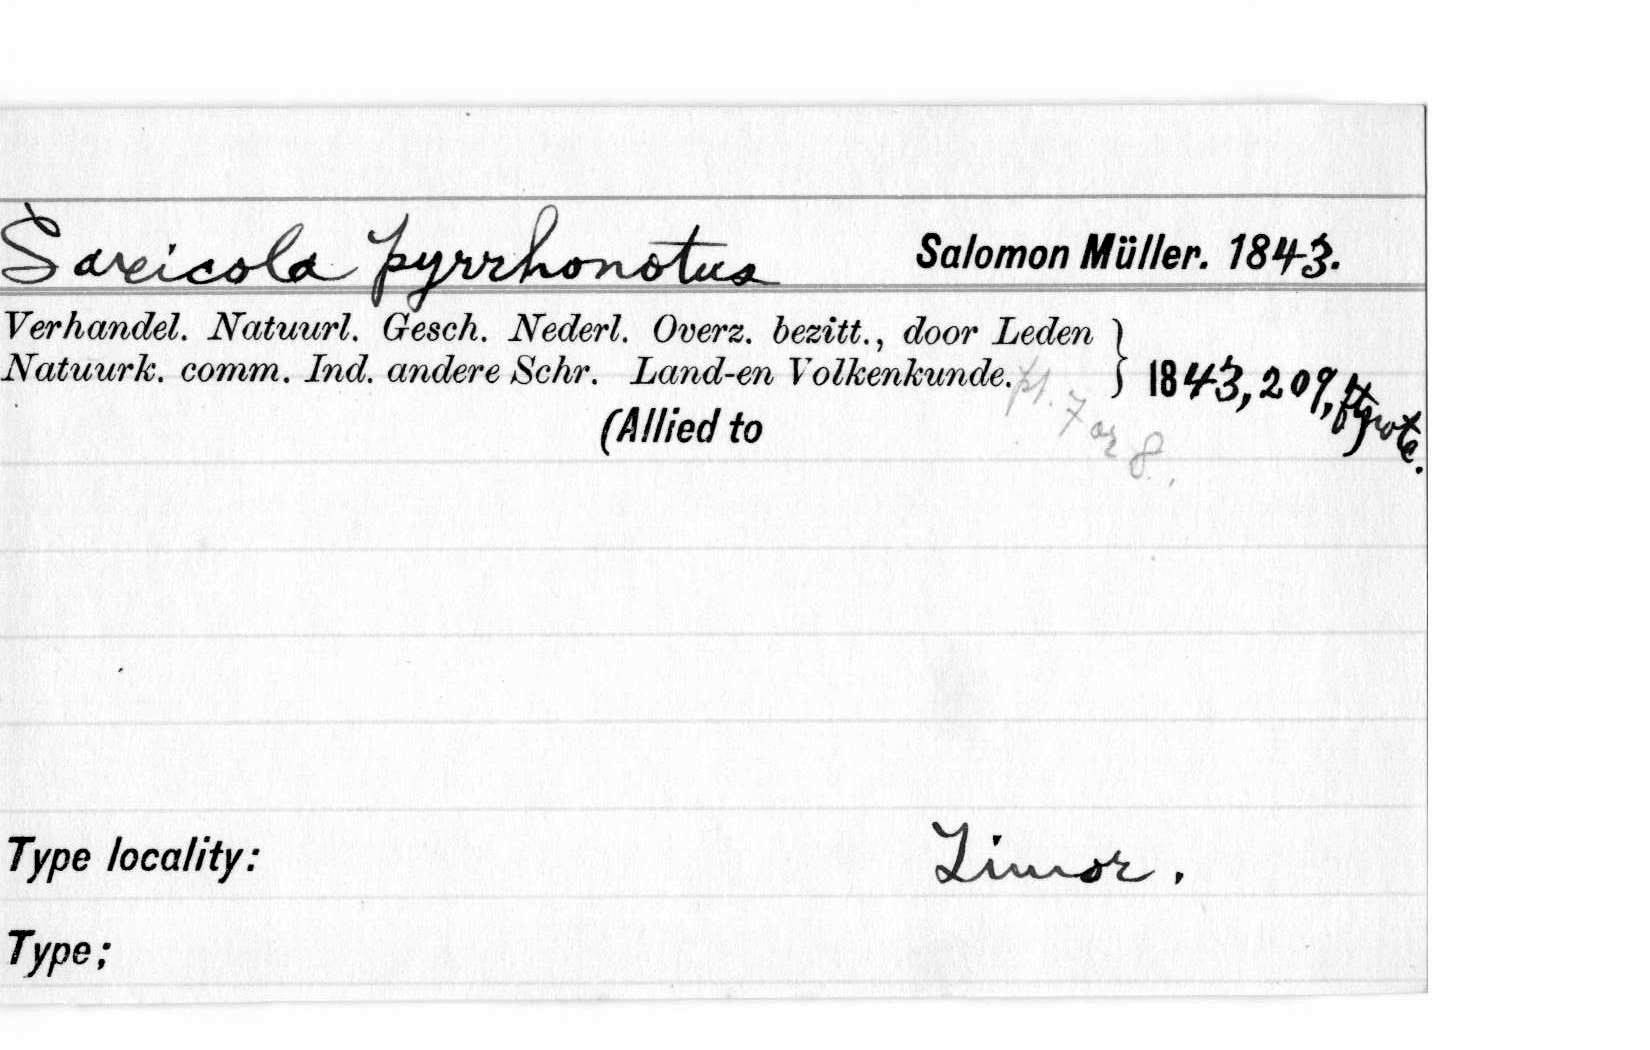 Saxicola pyrrhonotus Salomon Müller. 1843.
Verhandel. Natuurl. Gesch. Nederl. Overz. bezitt., door Leden
Natuurk. comm. Ind. andere Schr. Land-en Volkenkunde. } 1843, 209, ftnote.
pt. 7 or 8.
(Allied to
Type locality: Timor.
Type;